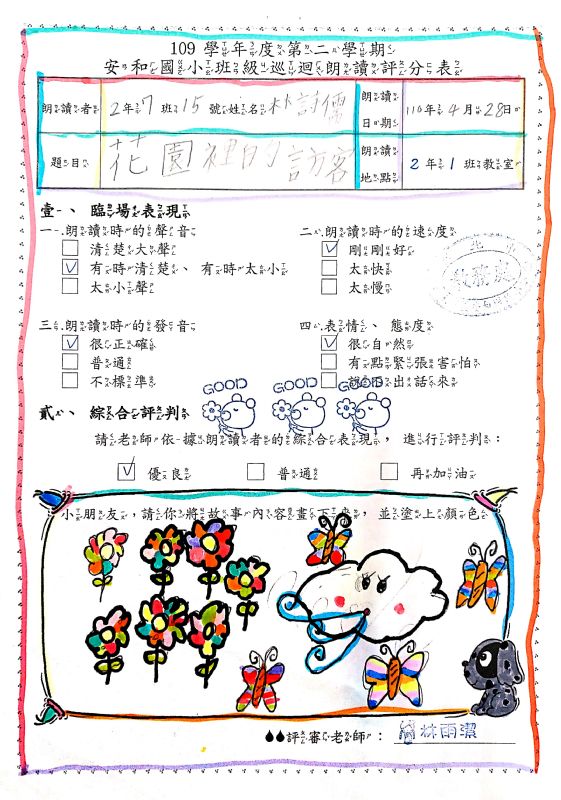 109 學年度第二學期
安和國小班級巡迴朗讀評分表
朗讀者 2年7班15號姓名林詩儒 朗讀日期 110年4月28日
題目 花園裡的訪客 朗讀地點 2年1班教室
壹、臨場表現
一.朗讀時的聲音
清楚大聲
有時清楚、有時太小
太小聲
二.朗讀時的速度
剛剛好
太快
太慢
三.朗讀時的發音
很正確
普通
不標準
四.表情、態度
很自然
有點緊張害怕
出話來
GOOD GOOD GOOD
貳、綜合評判
請老師依據朗讀者的綜合表現，進行評判：
優良 普通 再加油
小朋友，請你將故事內容畫下來，並塗上顏色
評審老師： 林雨潔